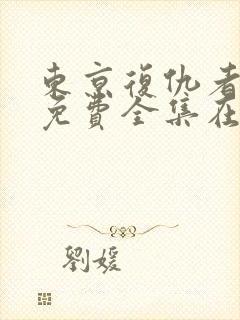 東京復仇者
免費全集在
劉媛